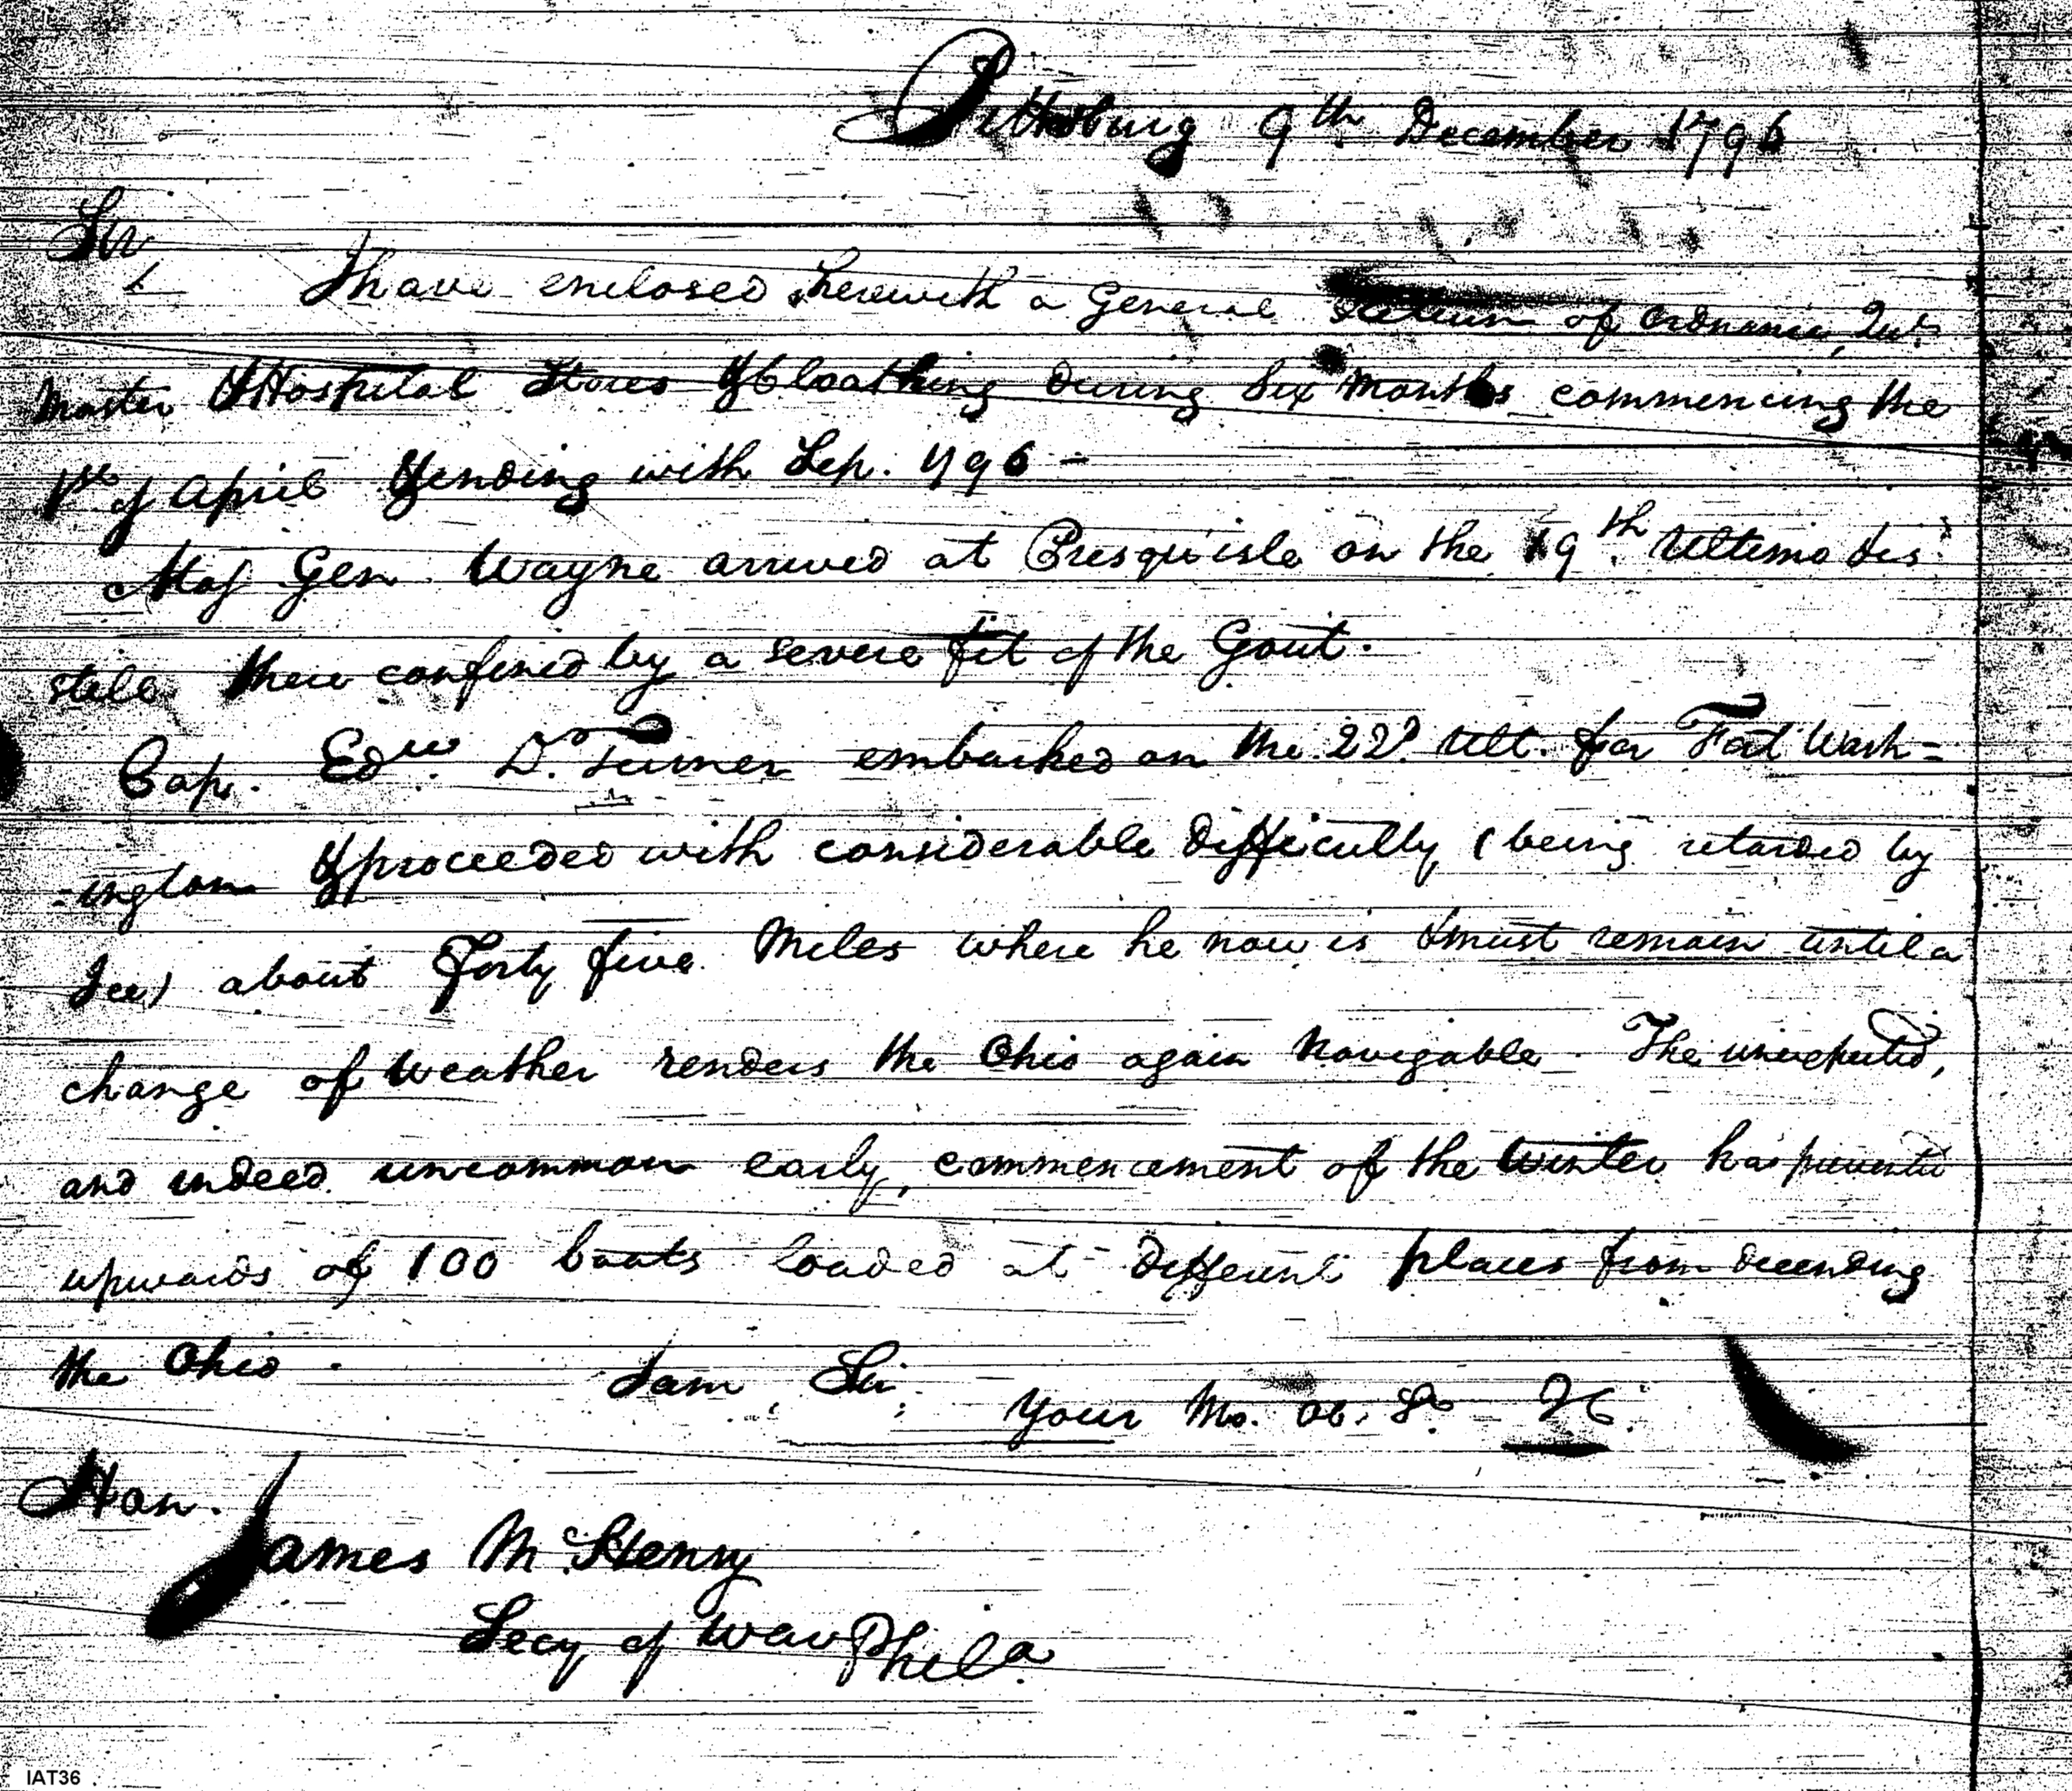 Pittsburg 9th. December 1796
Sir
I have enclosed herewith a General Return of Ordnance, Qur.
Master & Hospital Stores & Cloathing during Six Months commencing the
1st of April & ending with Sep. 1796 -
Maj Gen. Wayne arrived at Presqu'isle on the 19th. Ultimo & is
still there confined by a severe fit of the Gout.
Cap. Edw. D. Turner embarked on the 22d. Ult. for Fort Wash=
=ington & proceeded with considerable difficulty (being retarded by
Ice) about Forty five Miles where he now is & must remain until a
change of Weather renders the Ohio again Navigable. The unexpected,
and indeed uncommon early, commencement of the Winter has prevented
upwards of 100 boats loaded at different places from decending
the Ohio.
I am, Sir,
Your Mo. Ob. St.
Hon.
James McHenry
Secy of War Phila
IAT36